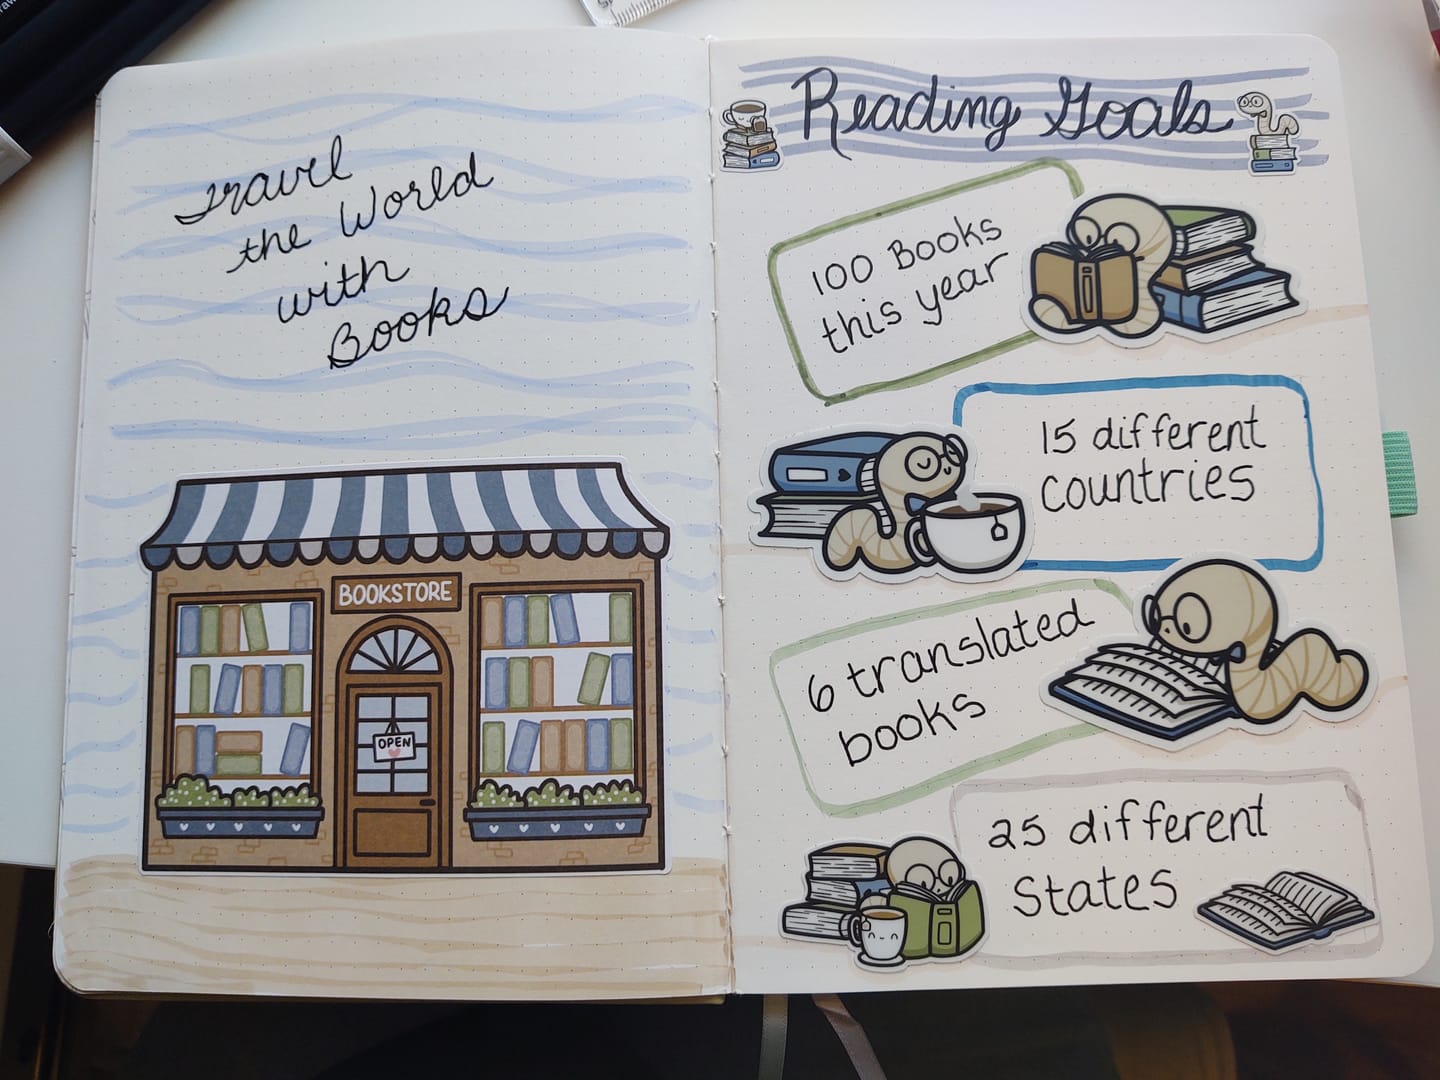 Travel
the World
with
Books
BOOKSTORE
OPEN
Reading Goals
100 Books
this year
15 different
countries
6 translated
books
25 different
States